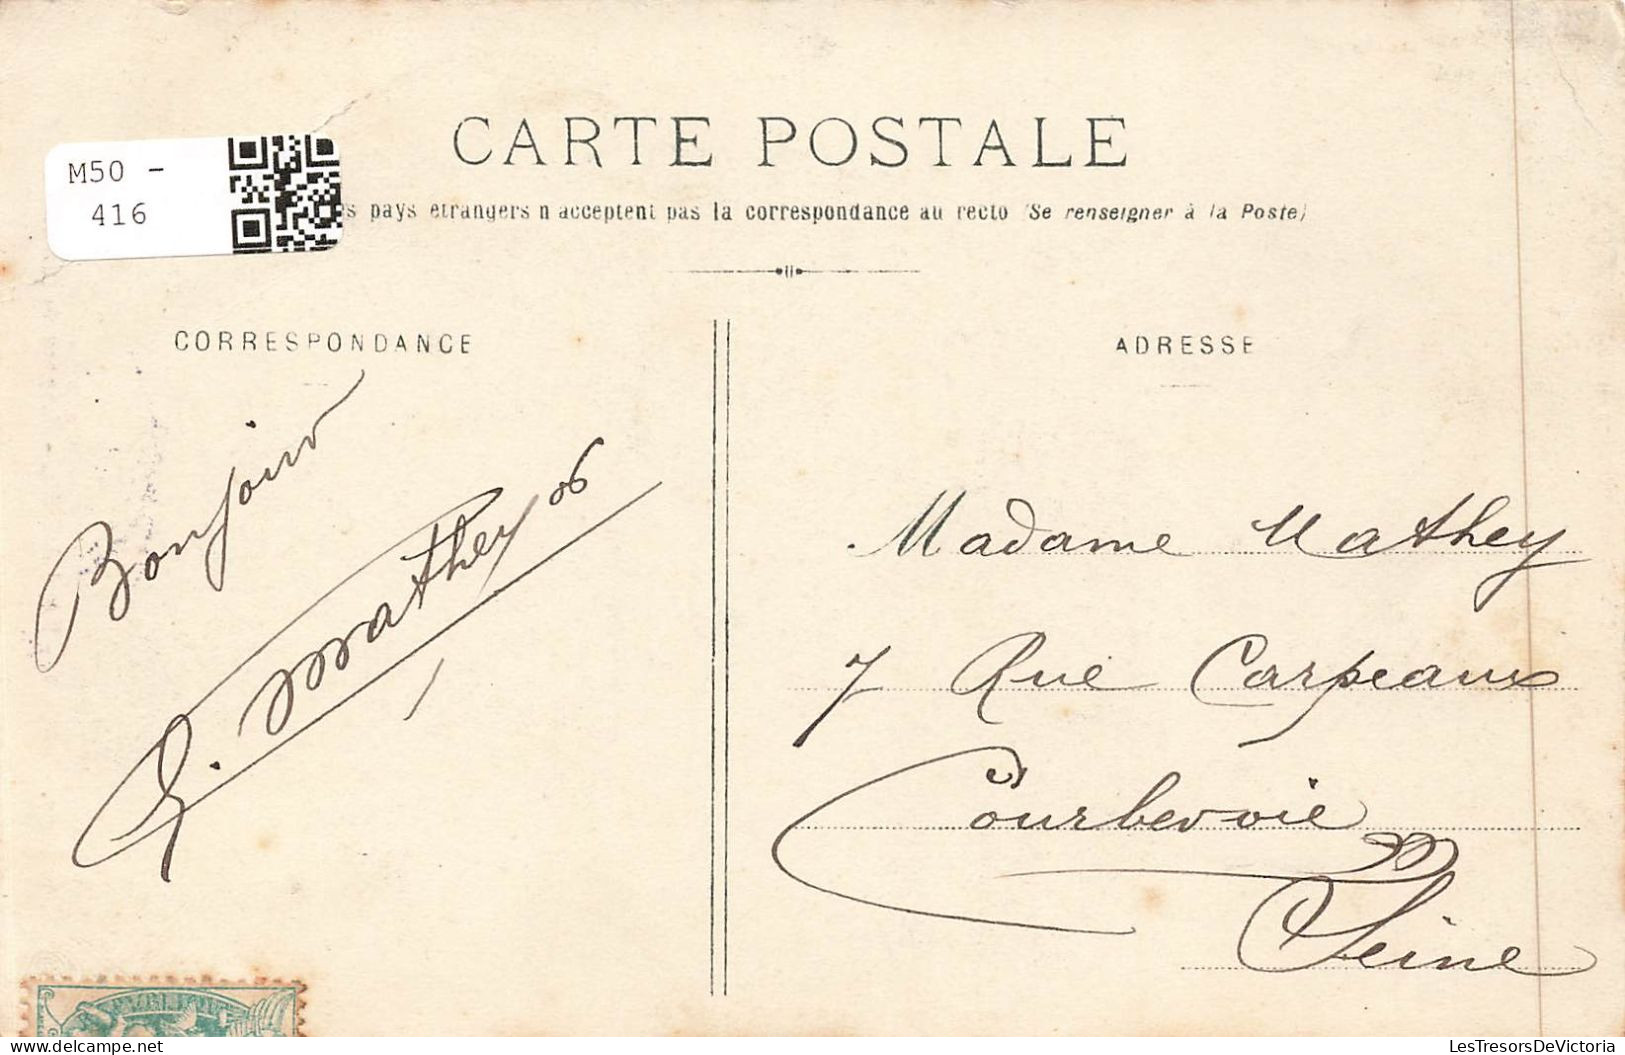 CARTE POSTALE
M50 -
416
es pays étrangers n'acceptent pas la correspondance au recto (Se renseigner à la Poste)
CORRESPONDANCE
Bonjour
G. Mathey 06
ADRESSE
Madame Mathey
7 Rue Carpeaux
Courbevoie
Seine
delcampe.net
LesTresorsDeVictoria